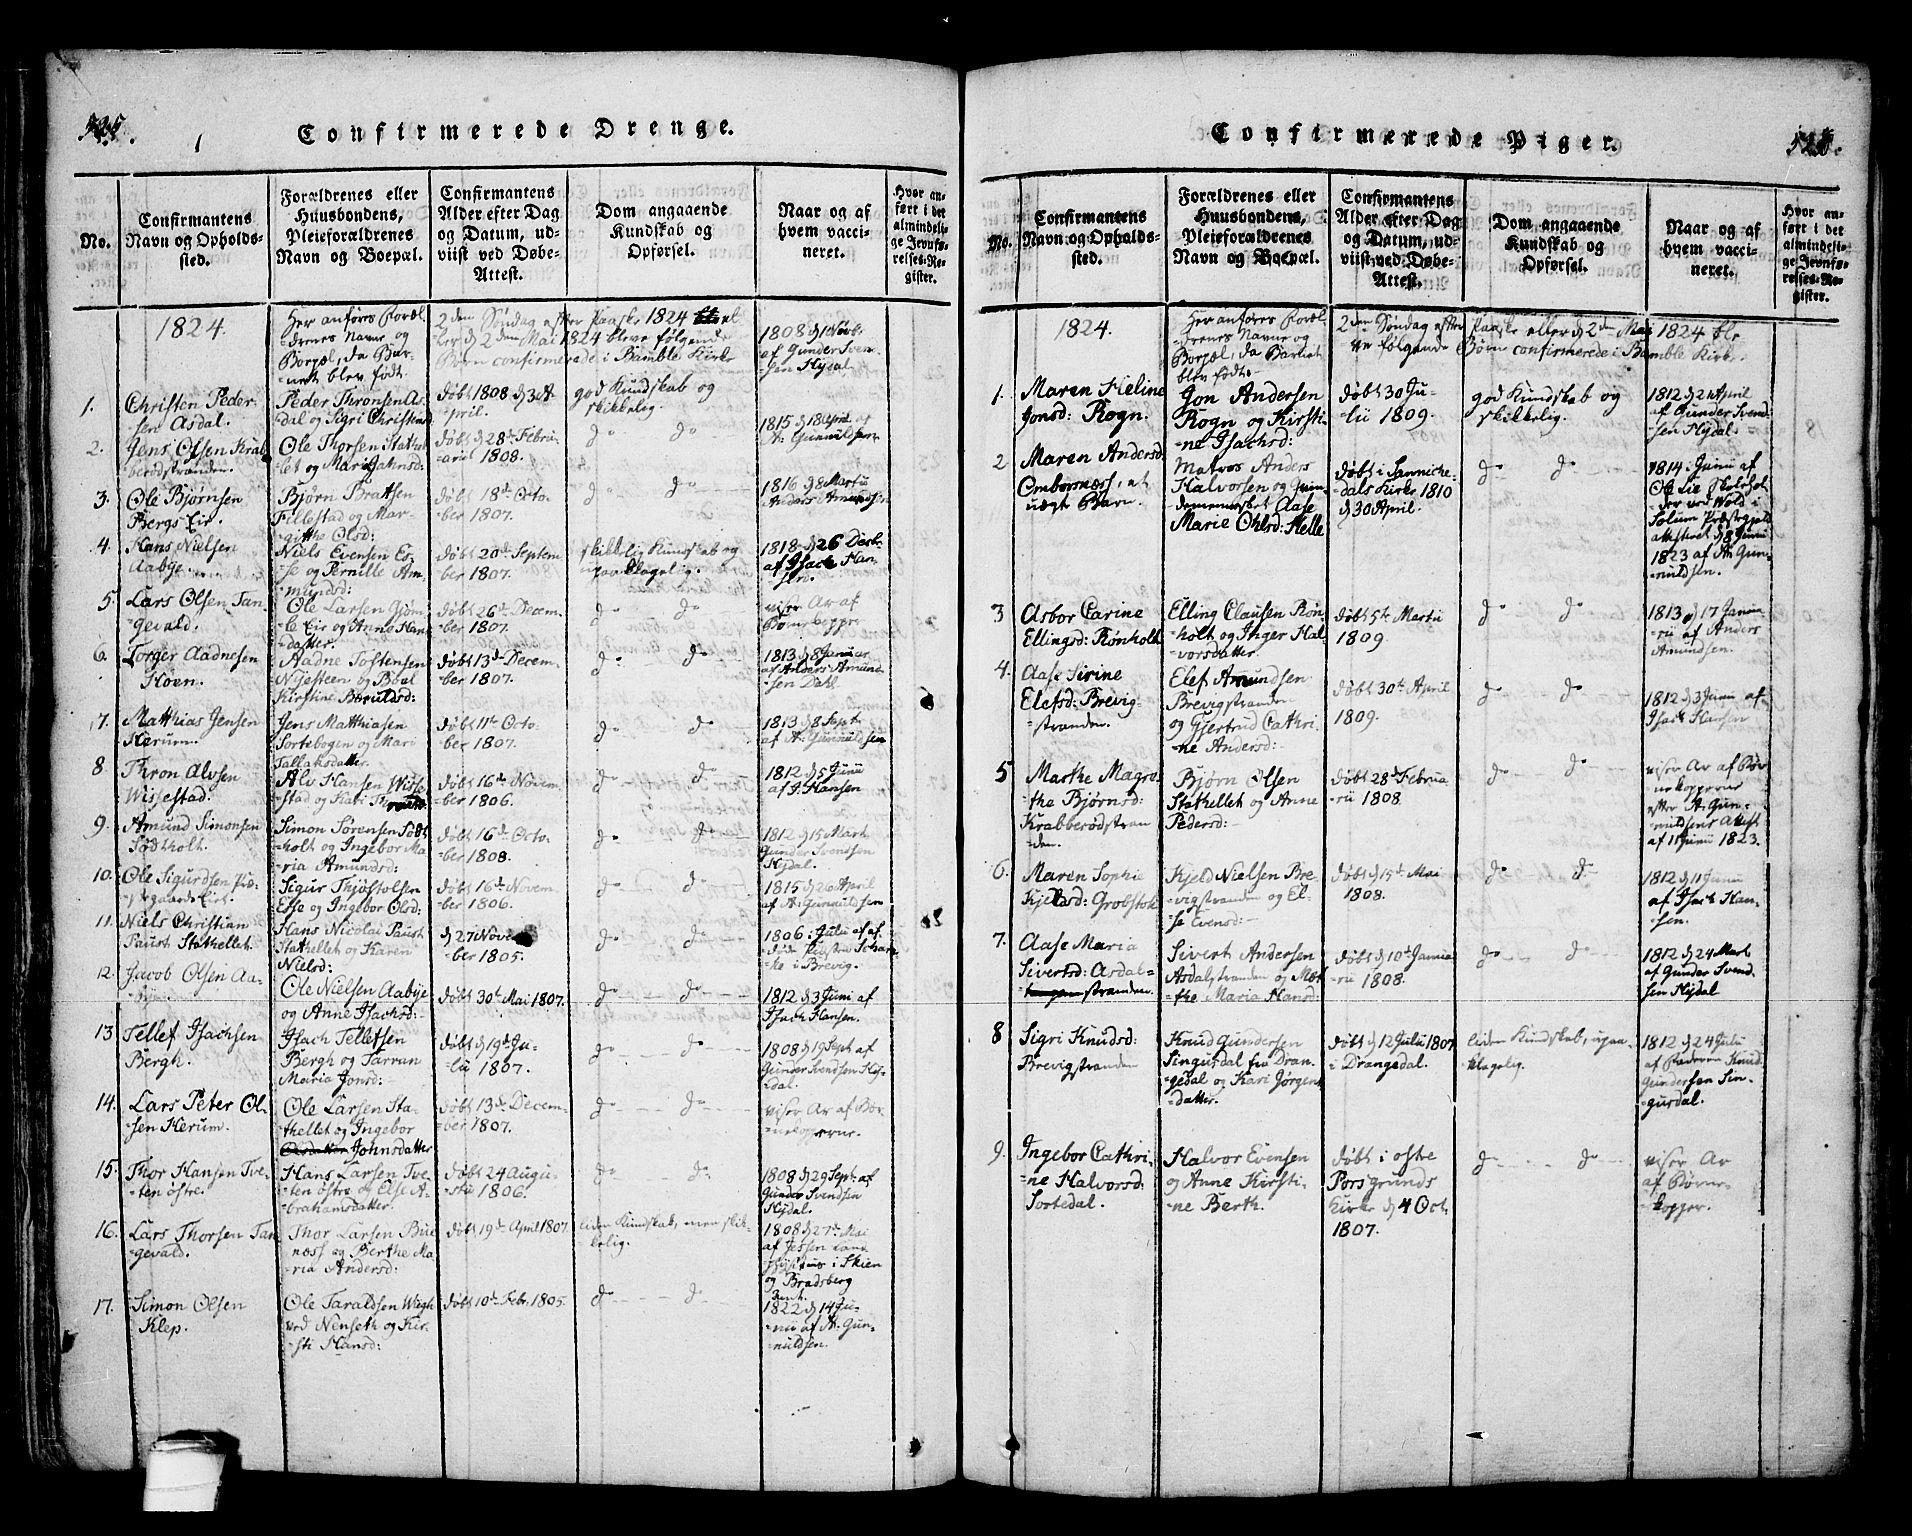 525.
1
Confirmerede Drenge.
No.
Confirmantens
Navn og Opholds-
sted.
Forældrenes eller
Huusbondens,
Pleieforældrenes
Navn og Boepæl.
Confirmantens
Alder efter Dag
og Datum, ud-
viist ved Døbe-
Attest.
Dom angaaende
Kundskab og
Opførsel.
Naar og af
hvem vacci-
neret.
Hvor an-
ført i det
almindeli-
ge Jevnfø-
relses-Re-
gister.
1824.
Her anføres Foræl
drenes Navne og
Borpæl, da Bar-
net blev født.
2den Søndag efter Paaske 1824 el
ler d 2den Mai 1824 bleve følgende
Børn confirmerede i Bamble Kirke
1.
Christen Peder-
sen Asdal.
Peder Thronsen As-
dal og Sigri Christensd
døbt 1808 d 3 A-
pril.
god Kundskab og
skikkelig.
1808 d 1 Novb.
af Gunder Sven-
sen Hydal.
2.
Jens Olsen Krab-
berødstranden.
Ole Thorsen Stathel-
let og Mari Jahnsd:
døbt d 28de Febru-
arii 1808.
do do
1815 d 18 April af
A: Gunnuldsen.
3.
Ole Bjørnsen
Bergs Eir.
Bjørn Bratsen
Fillestad og Mar-
githe Olsd:
døbt 18de Octo-
ber 1807.
do do
1816 d 8 Martii
Anders Amundsen
4.
Hans Nielsen
Aabye.
Niels Evensen Es-
se og Pernille Am-
mundsd:
døbt 20de Septem
ber 1807.
skikkelig Kundskab og
upaaklagelig.
1818 d 26 Decbr
af Isach Han-
sen.
5.
Lars Olsen Tan-
gevald.
Ole Larsen Gjøm-
le Eir og Anne Hans
datter.
døbt 26de Decem-
ber 1807.
do do
viser Ar af
Børnekopper.
6.
Torger Aadnesen
Hoen.
Aadne Tostensen
Nyesteen og Boel
Kirstine
døbt 13de Decem-
ber 1807.
do do
1813 d 8 Januar
af Anders Amund
sen Dahl.
7.
Matthias Jensen
Herum.
Jens Matthiasen
Sortebogen og Mari
Tallaksdatter.
døbt 11te Octo-
ber 1807.
do do
1813 d 8 Sept.
af A: Gunnuldsen
8.
Thron Alvsen
Wissestad.
Alv Hansen Wisse
stad og Kari
døbt 16de Novem
ber 1806.
do do
1812 d 5 Junii
af I. Hansen.
9.
Amund Simonsen
Sødtholt.
Simon Sørensen Södt
holt og Ingebor Ma-
ria Amundsd:
døbt 16de Octo-
ber 1808.
do do
1812 d 15 Mart.
Gunder Svendsen
Hydal.
10.
Ole Sigurdsen Præ-
stegaards Eir.
Sigur Thjøstolsen
Esse og Ingebor Olsd:
døbt 16de Novem
ber 1806.
do do
1815 d 26 April
af A: Gunnuldsen
11.
Niels Christian
Paust Stathellet.
Hans Nicolai Paust
Stathellet og Karen
Nielsd:
d 27 Novem
ber 1805.
do do
1806. Julii af af-
døde
i Brevig.
12.
Jacob Olsen Aa-
bye.
Ole Nielsen Aabye
og Anne Isachsd:
døbt 30te Mai 1807.
do do
1812 d 3 Juni af
Isach Hansen.
13
Tellef Isachsen
Bergh.
Isach Tellefsen
Bergh og Tarran
Maria Jonsd:
døbt d 19de Ju-
lii 1807.
do do
1808 d 19 Sept. af
Gunder Svendsen Hy-
dal.
14.
Lars Peter Ol-
sen Herum.
Ole Larsen Sta-
thellet og Ingebor
Johnsdatter
døbt 13de Decem-
ber 1807.
do do
viser Ar af Bør-
nekopperne.
15.
Thor Hansen Tve-
ten østre.
Hans Larsen Tve-
ten østre og Else A-
brahamsdatter.
døbt 24 Augu-
stii 1806.
do do
1808 d 29 Sept: af
Gunder Svendsen
Hydal.
16.
Lars Thorsen Tan
gevald.
Thor Larsen Bue
næss og Berthe Ma-
ria Andersd:
døbt 19de April 1807.
liden Kundskab, men skik-
kelig.
1808 d 27de Mai
af Jessen Land
Fysicus i Skien
og Bradsberg
Amt.
17.
Simon Olsen
Klep.
Ole Taraldsen Wiigh
ved Nenseth og Kir-
sti Hansd:
døbt 10de Febr: 1805.
do do
1822 d 14 Ju-
nii af A: Gun-
nuldsen.
Confirmerede Piger.
No.
Confirmantens
Navn og Opholds-
sted.
Forældrenes eller
Huusbondens,
Pleieforældrenes
Navn og Boepæl.
Confirmantens
Alder efter Dag
og Datum, ud-
viist ved Døbe-
Attest.
Dom angaaende
Kundskab og
Opførsel.
Naar og af
hvem vacci-
neret.
Hvor an-
ført i det
almindeli-
ge Jevnfø-
relses-Re-
gister.
1824.
Her anføres Foræl
drenes Navne og
Borpæl, da Barnet
blev født.
2den Søndag efter Paaske eller d 2den Mai 1824 ble
ve følgende Børn confirmerede i Bamble Kirke.
1.
Maren Heline
Jonsd: Rogn.
Jon Andersen
Rogn og Kirsti-
ne Isachsd:
døbt 30 Ju-
lii 1809.
god Kundskab og
skikkelig.
1812 d 21 April
af Gunder Svend-
sen Hydal.
2
Maren Andersd
Ombornæss, et
uægt Barn.
Matros Anders
Halvorsen og Qvin-
demennesket Aase
Marie Ohlsd: Helle
døbt i Sanniche-
dals Kirke 1810
d 30 April.
do do
1814. Junii af
Ole Lie Skolehol-
der ved Wold i
Solum Præstegjeld
attesteret d 8 Junii
1823 af A: Gun-
nuldsen.
3
Asbor Carine
Ellingsd: Rønholt
Elling Clausen Røn-
holt og Inger Hal-
vorsdatter.
døbt 5te Martii
1809.
do do
1813 d 17 Janua-
rii af Anders
Amundsen.
4.
Aase Sirine
Elefsd: Brevig-
stranden.
Elef Amundsen
Brevigstranden
og Gjertrud Cathri-
ne Andersd:
døbt 30te April
1809.
do do
1812 d 3 Junii af
Isach Hansen
5
Marthe Magre-
the Bjørnsd:
Krabberødstran
den.
Bjørn Olsen
Stathellet og Anne
Pedersd:
døbt 28de Februa
rii 1808.
do do
viser Ar af Bør-
nekopperne
efter A: Gun-
nuldsens Attest
af 11 Junii 1823.
6.
Maren Sophie
Kjeldsd: Grobstok
Kjeld Nielsen Bre-
vigstranden og El-
se Evensd:
døbt d 15de Mai
1808.
do do
1812 d 11 Junii
af Isach Han-
sen.
7.
Aase Maria
Sivertsd: Asdal-
stranden.
Sivert Andersen
Asdalstranden og Mar-
the Maria Hansd:
døbt d 10de Janua
rii 1808.
do do
1812 d 24 Mart.
af Gunder Svend-
sen Hydal
8
Sigri Knudsd:
Brevigstranden
Knud Gundersen
Singusdal fra Dran-
gedal og Kari Jørgens
datter.
døbt d 12 Julii 1807
i Drangedal.
liden Kundskab, upaa-
klagelig.
1812 d 24 Julii
af Faderen Knud
Gundersen Sin-
gusdal.
9.
Ingebor Cathri-
ne Halvorsd:
Sortedal.
Halvor Evensen
og Anne Kirsti-
ne Berth.
døbt i østre
Porsgrunds
Kirke d 4 Oct.
1807.
do do
viser Ar
af Børne-
kopper.